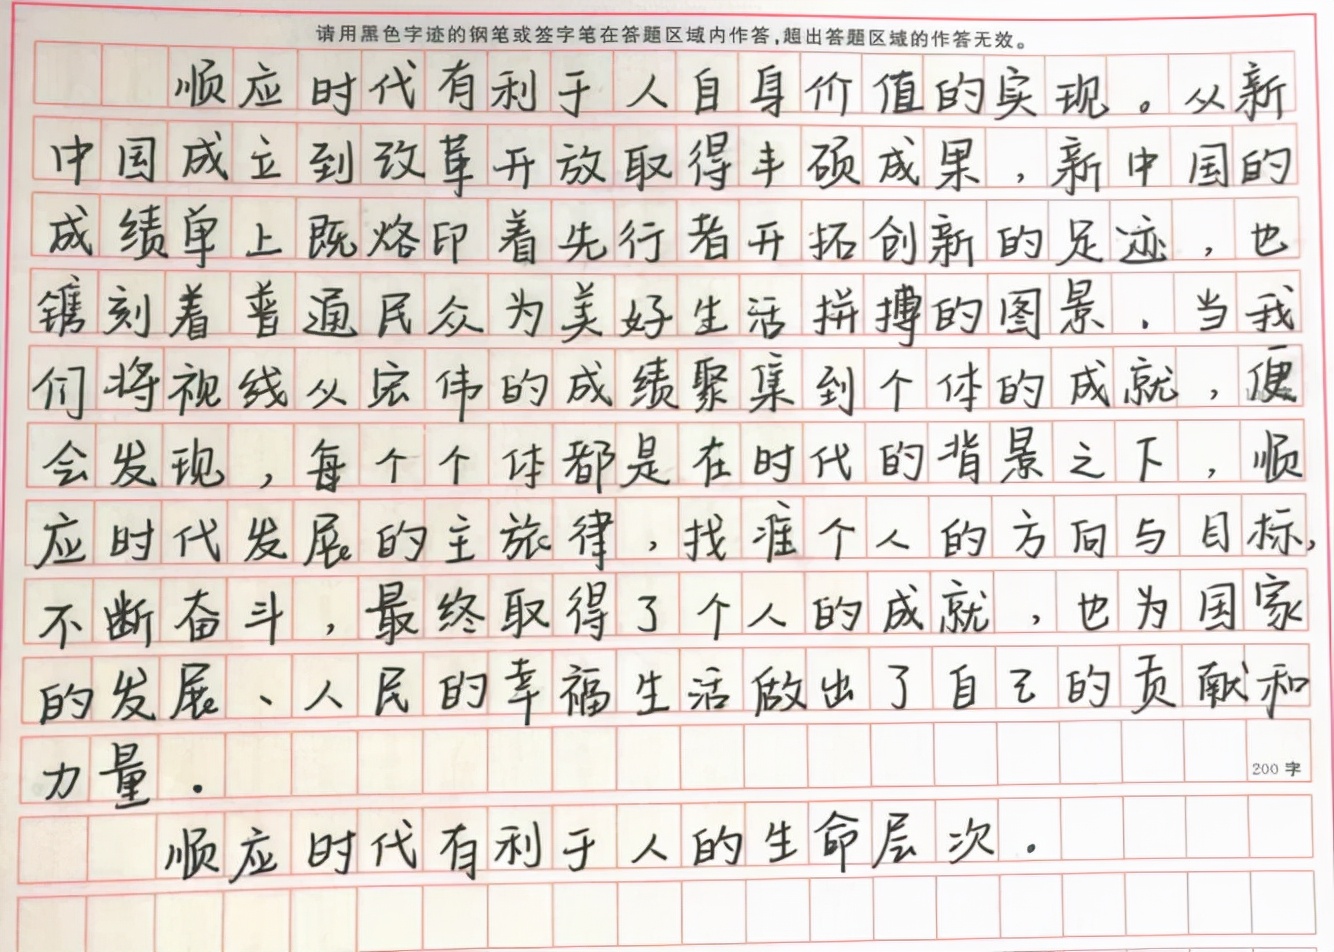 请用黑色字迹的钢笔或签字笔在答题区域内作答,超出答题区域的作答无效。
顺应时代有利于人自身价值的实现。从新
中国成立到改革开放取得丰硕成果,新中国的
成绩单上既烙印着先行者开拓创新的足迹,也
镌刻着普通民众为美好生活拼搏的图景.当我
们将视线从宏伟的成绩聚集到个体的成就,便
会发现,每个个体都是在时代的背景之下,顺
应时代发展的主旅律,找准个人的方向与目标,
不断奋斗,最终取得了个人的成就,也为国家
的发展、人民的幸福生活做出了自己的贡献和
力量.
200字
顺应时代有利于人的生命层次.